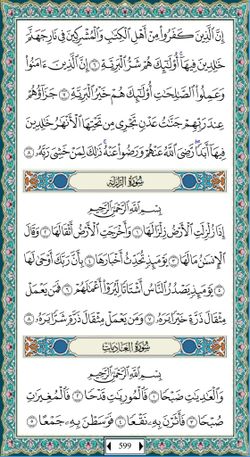 إِنَّ ٱلَّذِينَ كَفَرُوا۟ مِنْ أَهْلِ ٱلْكِتَٰبِ وَٱلْمُشْرِكِينَ فِى نَارِ جَهَنَّمَ
خَٰلِدِينَ فِيهَآ أُو۟لَٰٓئِكَ هُمْ شَرُّ ٱلْبَرِيَّةِ ٦ إِنَّ ٱلَّذِينَ ءَامَنُوا۟
وَعَمِلُوا۟ ٱلصَّٰلِحَٰتِ أُو۟لَٰٓئِكَ هُمْ خَيْرُ ٱلْبَرِيَّةِ ٧ جَزَآؤُهُمْ
عِندَ رَبِّهِمْ جَنَّٰتُ عَدْنٍ تَجْرِى مِن تَحْتِهَا ٱلْأَنْهَٰرُ خَٰلِدِينَ
فِيهَآ أَبَدًا رَّضِىَ ٱللَّهُ عَنْهُمْ وَرَضُوا۟ عَنْهُ ذَٰلِكَ لِمَنْ خَشِىَ رَبَّهُۥ ٨
سُورَةُ الزَّلْزَلَةِ
بِسْمِ ٱللَّهِ ٱلرَّحْمَٰنِ ٱلرَّحِيمِ
إِذَا زُلْزِلَتِ ٱلْأَرْضُ زِلْزَالَهَا ١ وَأَخْرَجَتِ ٱلْأَرْضُ أَثْقَالَهَا ٢ وَقَالَ
ٱلْإِنسَٰنُ مَا لَهَا ٣ يَوْمَئِذٍ تُحَدِّثُ أَخْبَارَهَا ٤ بِأَنَّ رَبَّكَ أَوْحَىٰ لَهَا
٥ يَوْمَئِذٍ يَصْدُرُ ٱلنَّاسُ أَشْتَاتًا لِّيُرَوْا۟ أَعْمَٰلَهُمْ ٦ فَمَن يَعْمَلْ
مِثْقَالَ ذَرَّةٍ خَيْرًا يَرَهُۥ ٧ وَمَن يَعْمَلْ مِثْقَالَ ذَرَّةٍ شَرًّا يَرَهُۥ ٨
سُورَةُ العَادِيَاتِ
بِسْمِ ٱللَّهِ ٱلرَّحْمَٰنِ ٱلرَّحِيمِ
وَٱلْعَٰدِيَٰتِ ضَبْحًا ١ فَٱلْمُورِيَٰتِ قَدْحًا ٢ فَٱلْمُغِيرَٰتِ
صُبْحًا ٣ فَأَثَرْنَ بِهِۦ نَقْعًا ٤ فَوَسَطْنَ بِهِۦ جَمْعًا ٥
599